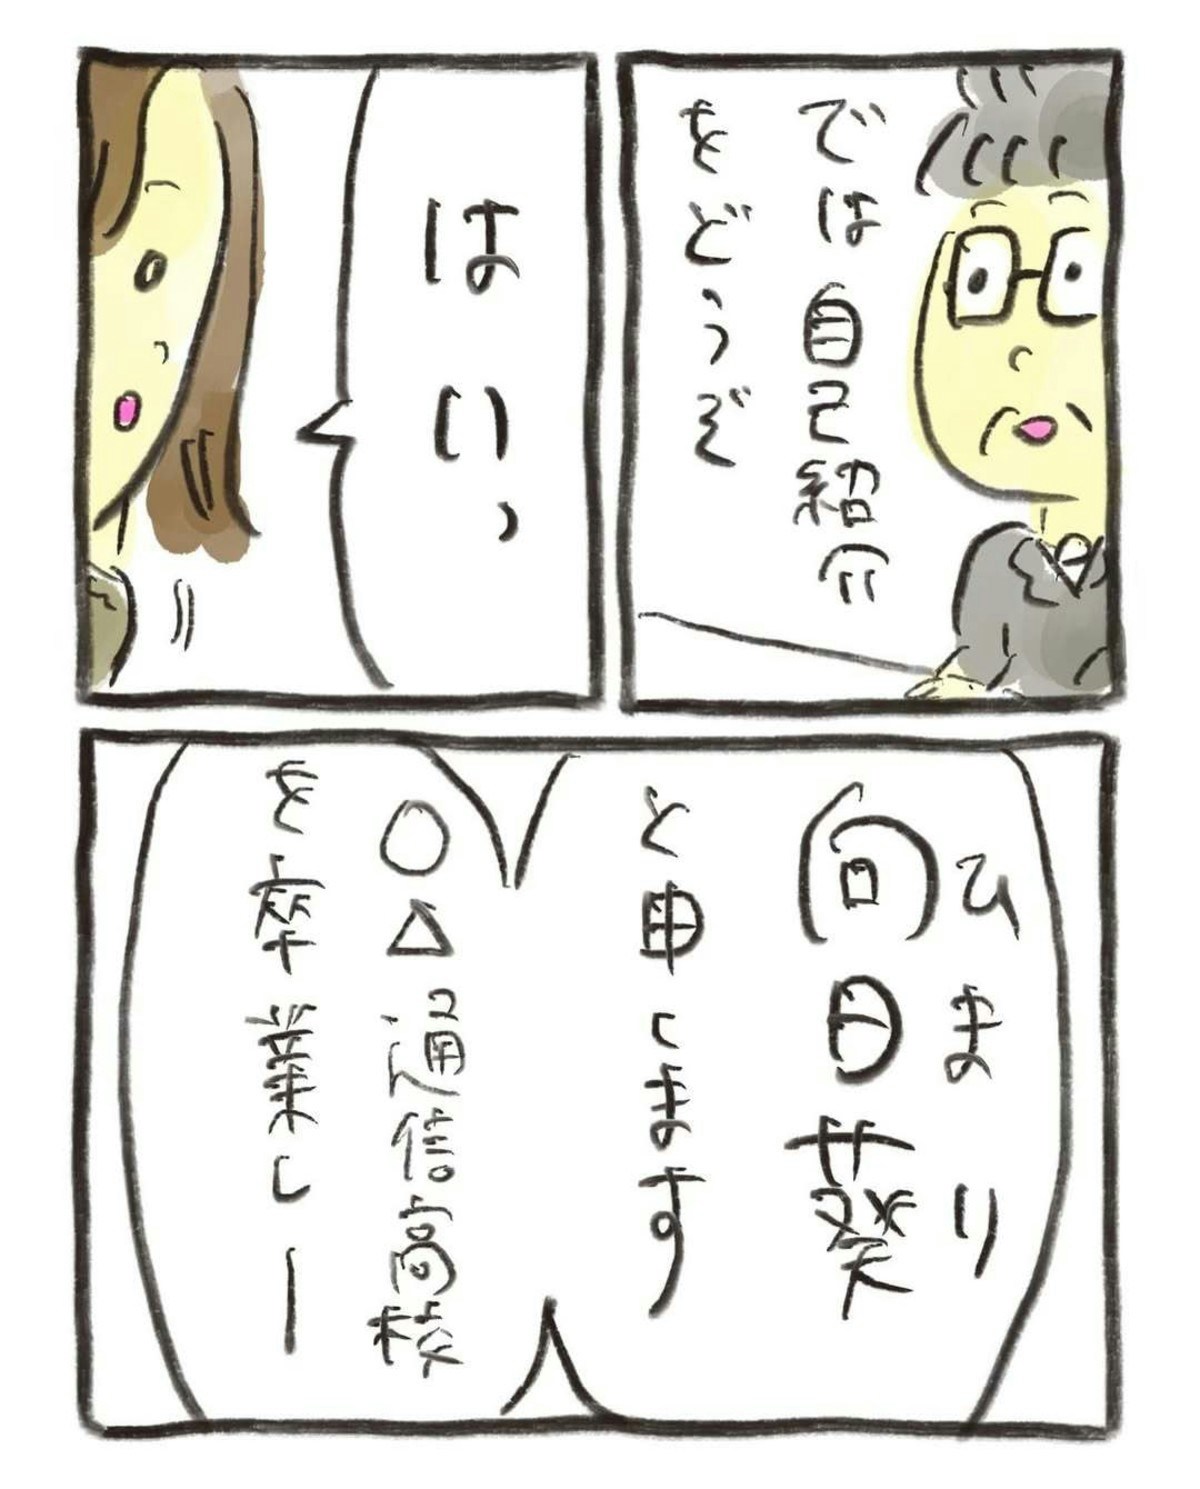 では自己紹介
をどうぞ
はいっ
ひまり
向日葵
と申します
○△通信高校
を卒業しー